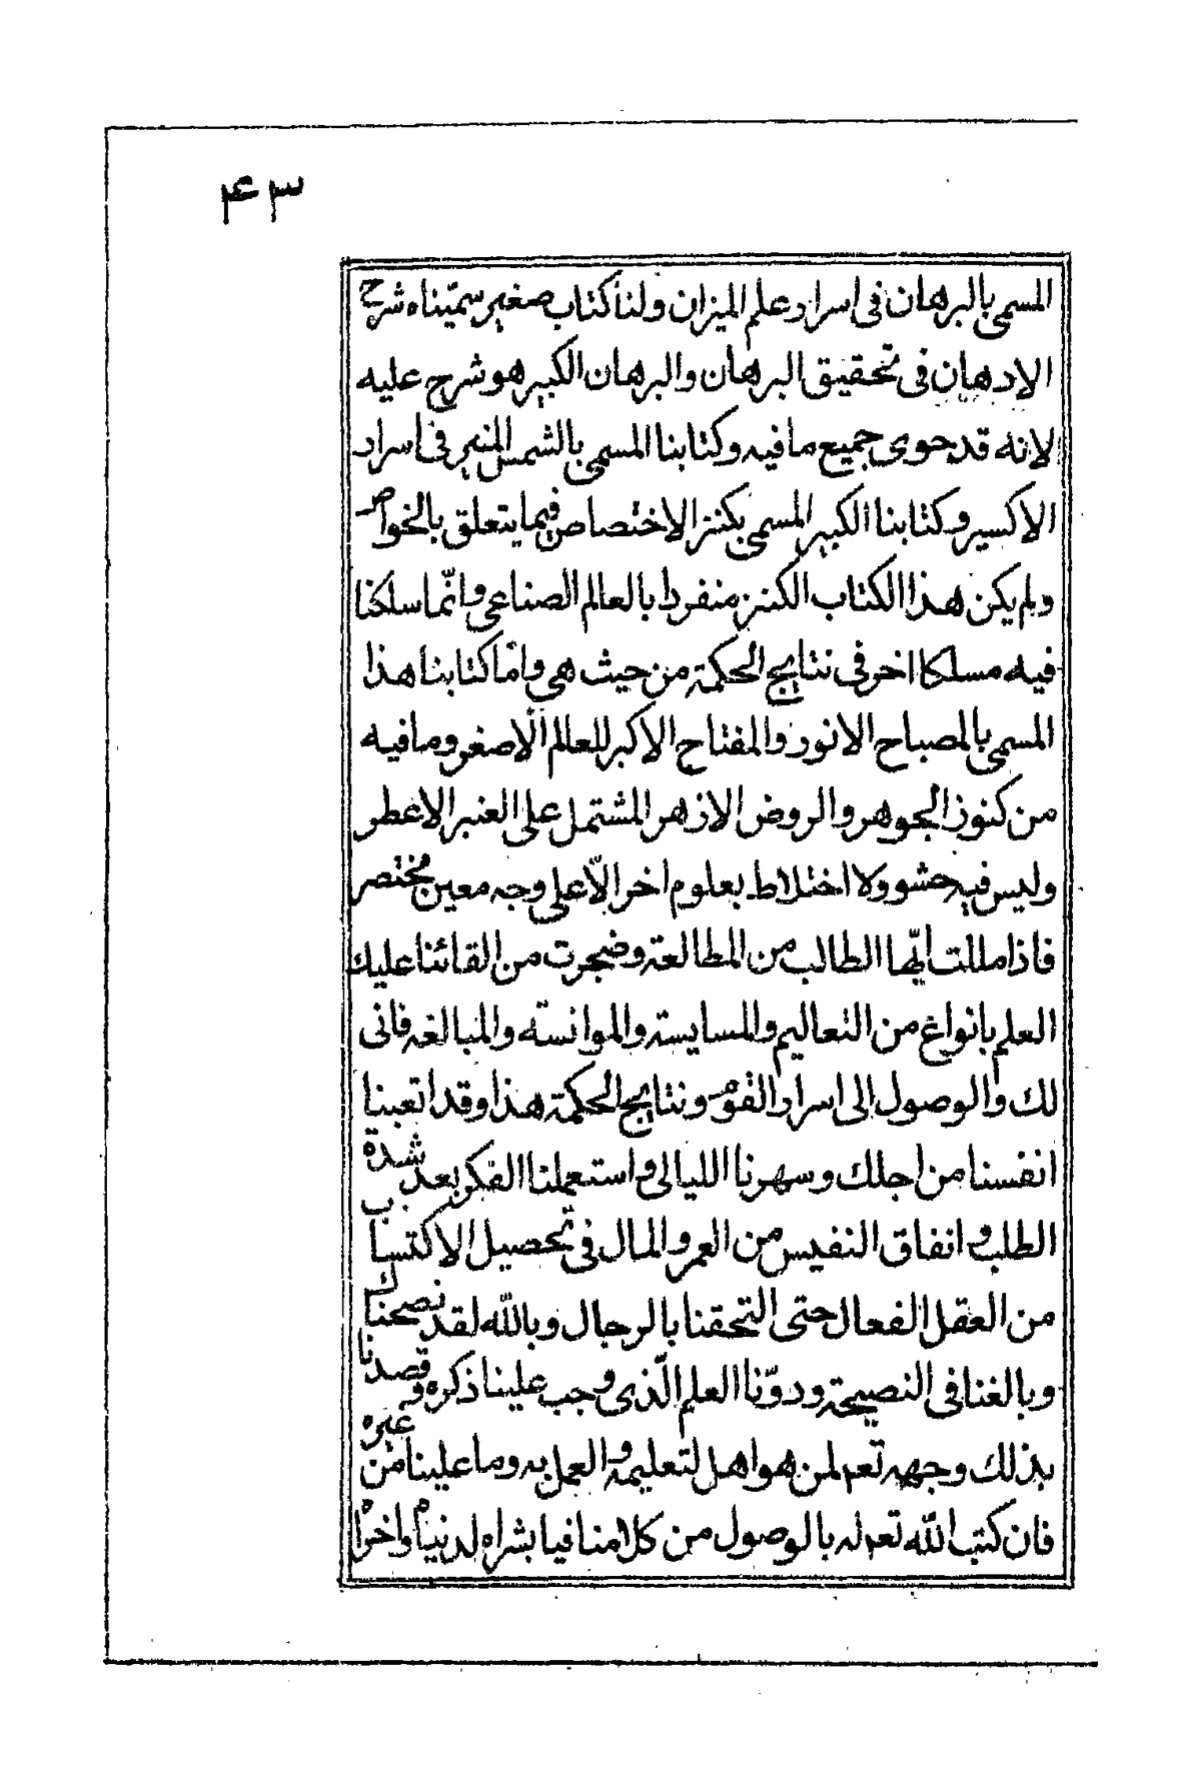 ۴۳
المسمى بالبرهان فى اسرار علم الميزان ولنا كتاب صغير سمّيناه شرح
الادهان فى تحقيق البرهان والبرهان الكبير هو شرح عليه
لانه قد حوى جميع ما فيه وكتابنا المسمى بالشمس المنير فى اسرار
الاكسير وكتابنا الكبير المسمى بكنز الاختصاص فيما يتعلق بالخواص
ولم يكن هذا الكتاب الكنز منفردا بالعالم الصناعى وانّما سلكنا
فيه مسلكا اخر فى نتايج الحكمة من حيث هى وامّا كتابنا هذا
المسمى بالمصباح الانور والمفتاح الاكبر للعالم الاصغر وما فيه
من كنوز الجوهر والروض الازهر المشتمل على العنبر الاعطر
وليس فيه حشو ولا اختلاط بعلوم اخر الّا على وجه معين مختصر
فاذا مللت ايّها الطالب من المطالعة وضجرت من القائنا عليك
العلم بانواع من التعاليم والمسايسة والموانسته والمبالغه فانى
لك والوصول الى اسرار القوم ونتايج الحكمة هذا وقد اتعبنا
انفسنا من اجلك وسهرنا الليالى واستعملنا الفكر بعد شدة
الطلب وانفاق النفيس من العمر والمال فى تحصيل الاكتساب
من العقل الفعال حتى التحقنا بالرجال وبالله لقد نصحناك
وبالغنا فى النصيحة ودوّنا العلم الّذى وجب علينا ذكره وقصدنا
بذلك وجهه تعم لمن هو اهل لتعليمه والعمل به وما علينا من غيره
فان كتب الله تعم له بالوصول من كلامنا فيا بشراه لدنياه واخراه